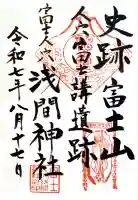 史跡富士山
人穴富士講遺跡
富士人穴
浅間神社
令和七年八月十七日